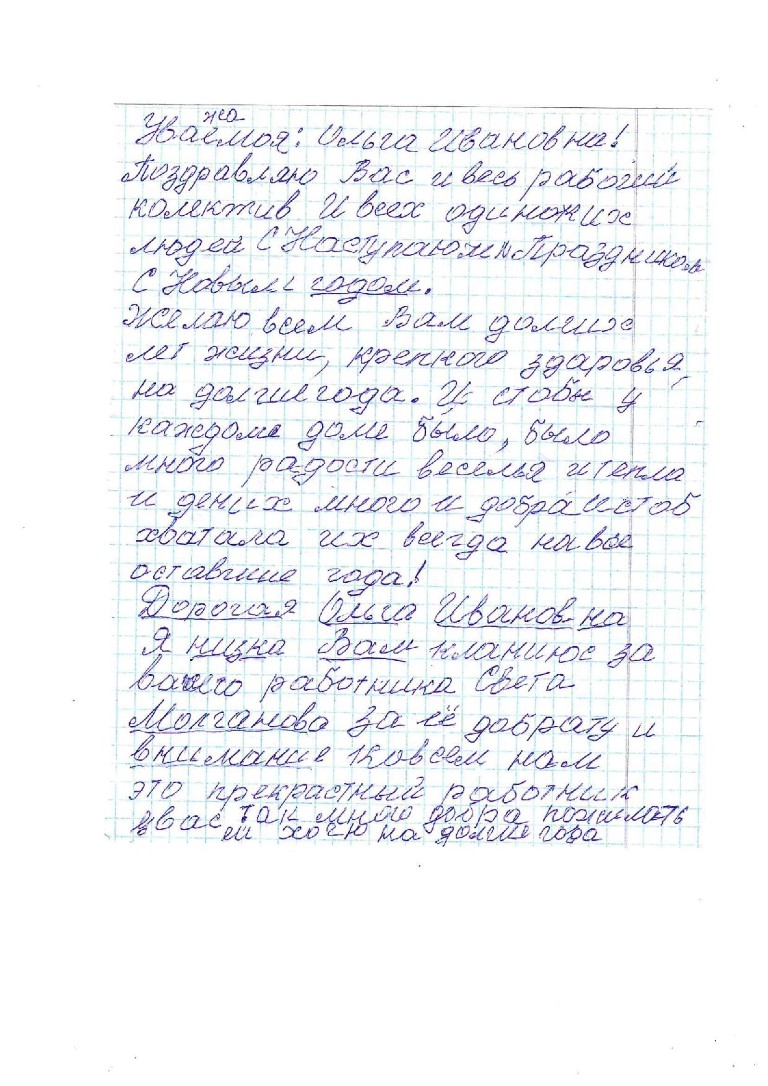 Уважаемоя: Ольга Ивановна!
Поздравляю Вас и весь рабочий
колектив И всех одиножих
людей С Наступаюжем Праздником
С Новым годом.
Желаю всем Вам должих
лет жизни, крепкого здаровья,
на долгие года. И стобы у
каждоме доме было, было
много радости веселья и тепла
и дених много и добра и стоб
хватала их всегда на все
оставшие года!
Дорогая Ольга Ивановна
Я низка Вам кланиюс за
вашего работника Света
Молганова За её добрату и
внимание ко всем нам
это прекрастный работник
у вас так много добра пожилать
ей хочю на долгие года